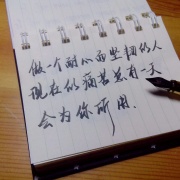 做一个耐心而坚韧的人
现在的痛苦总有一天
会为你所用.